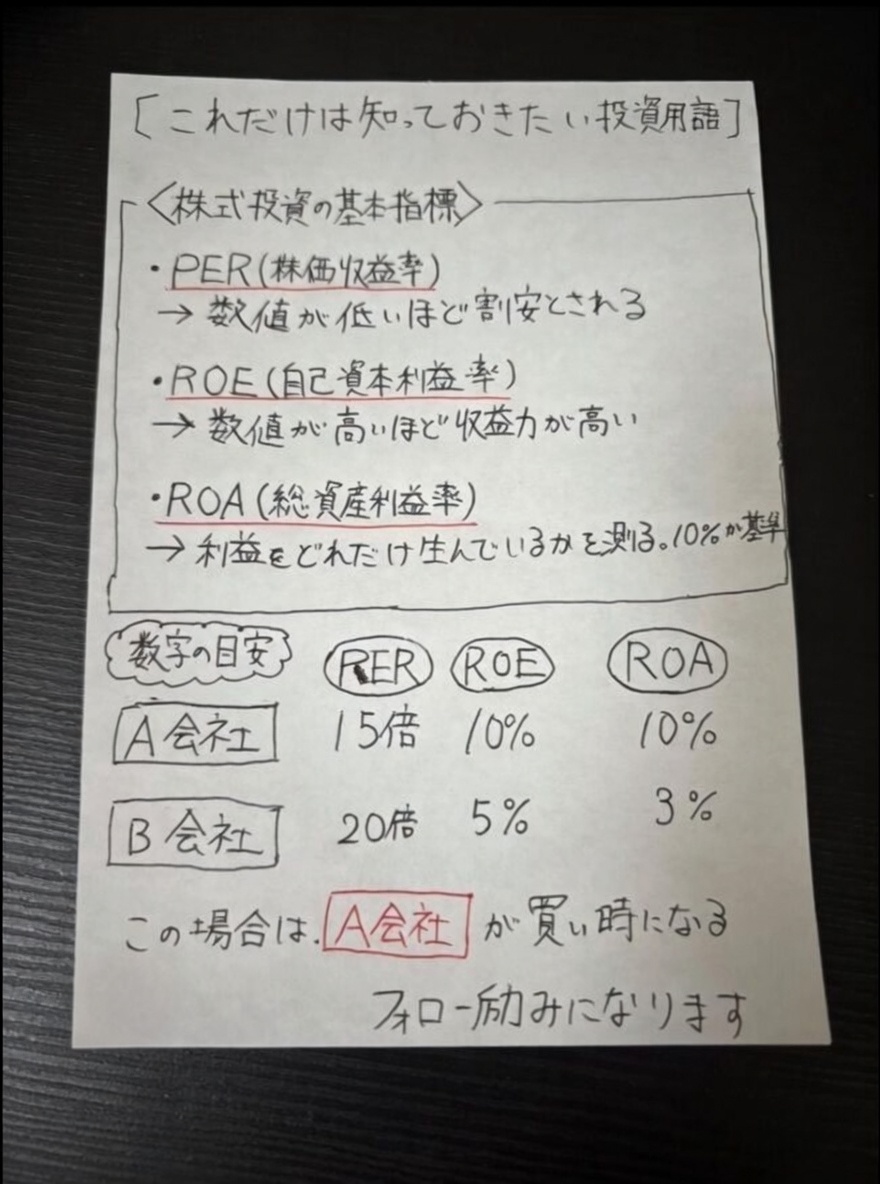 [これだけは知っておきたい投資用語]
〈株式投資の基本指標〉
・PER(株価収益率)
→ 数値が低いほど割安とされる
・ROE(自己資本利益率)
→ 数値が高いほど収益力が高い
・ROA(総資産利益率)
→ 利益をどれだけ生んでいるかを測る。10%が基準
数字の目安 PER ROE ROA
A会社 15倍 10% 10%
B会社 20倍 5% 3%
この場合は、A会社が買い時になる
フォロー励みになります